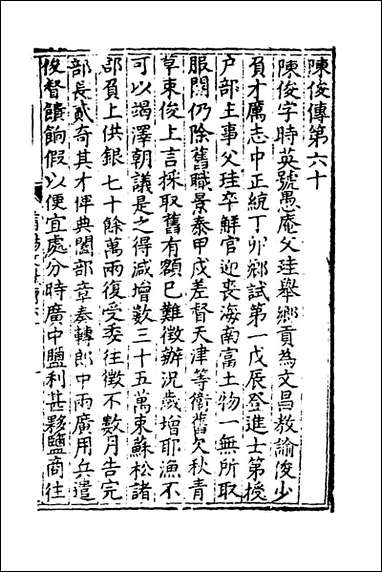 陳俊傳第六十
陳俊字時英號愚庵父珪舉鄉貢為文昌教諭俊少
負才厲志中正統丁卯鄉試第一戊辰登進士第授
户部主事父珪卒鮮官迎丧海南富土物一無所取
服闋仍除舊職景泰甲戌差督天津等衛舊欠秋青
草束俊上言採取舊有額已難徵辦況歲增耶漁不
可以竭澤朝議是之得減增數三十五萬束蘇松諸
郡負上供銀七十餘萬兩復受委往徵不數月告完
部長貳奇其才俾典闔部章奏轉郎中兩廣用兵遣
俊督饋餉假以便宜處分時廣中鹽利甚夥鹽商往